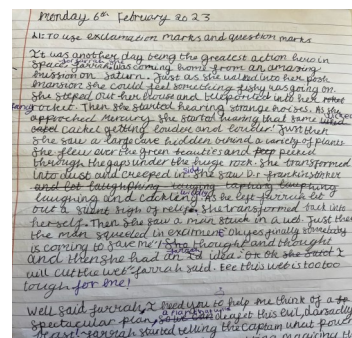 Monday 6th February 2023
LI: To use exclamation marks and question marks
It was another day being the greatest action hero in
space. Farrah was coming home from an amazing
mission on Saturn. Just as she walked into her posh
mansion she could feel something fishy was going on.
She steped out her house and teleported into her
rocket. Then she started hearing strange noises. As she
approched Mercury she started hearing that same
cackel getting louder and louder! Just then
she saw a large cave hidden behind a variety of plants
She flew over the green beauties and peeped
through the gaps under the huge rock. She transformed
into dust and creeped in. She saw D.r frankinstinker
laughing and cackling. As he left farrah let
out a silent sigh of relife. She transformed back into
herself. Then she saw a man stuck in a web. Just then
the man squealed in exciment "Oh yes finally somebody
is coming to save me"! She thought and thought
and then she had an Id idea. "Ok I
will cut the web" farrah said. Eee this web is too too
tough for me!
Well said farrah, I need you to help me think of a
spectacular plan, to defeat this evil, darsadly
beast. farrah started telling the captain what power